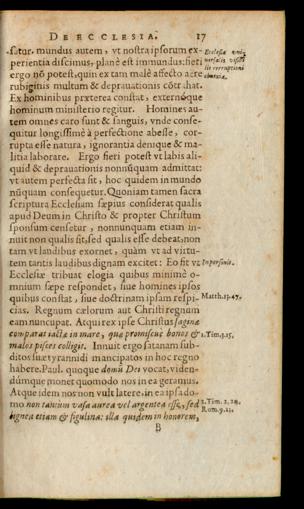 DE ECCLESIA. 17
satur. mundus autem, vt nostra ipsorum ex-
perientia discimus, planè est immundus: fieri
ergo nō potest, quin ex tam malè affecto aere
rubiginis multum & deprauationis cōtrahat.
Ex hominibus præterea constat, externóque
hominum ministerio regitur. Homines au-
tem omnes caro sunt & sanguis, vnde conse-
quitur longissimè à perfectione abesse, cor-
rupta esse natura, ignorantia denique & ma-
litia laborare. Ergo fieri potest vt labis ali-
quid & deprauationis nonnūquam admittat:
vt autem perfecta sit, hoc quidem in mundo
nūquam consequetur. Quoniam tamen sacra
scriptura Ecclesiam sæpius considerat qualis
apud Deum in Christo & propter Christum
sponsum censetur, nonnunquam etiam in-
nuit non qualis sit, sed qualis esse debeat: non
tam vt laudibus exornet, quàm vt ad virtu-
tem tantis laudibus dignam excitet: Eo fit vt
Ecclesiæ tribuat elogia quibus minimè o-
mnium sæpe respondet, siue homines ipsos
quibus constat, siue doctrinam ipsam respi-
cias. Regnum cælorum aut Christi regnum
eam nuncupat. Atqui rex ipse Christus sagenæ
comparat iactæ in mare, quæ promiscuè bonos &
malos pisces colligit. Innuit ergo satanam sub-
ditos suæ tyrannidi mancipatos in hoc regno
habere. Paul. quoque domū Dei vocat, viden-
dúmque monet quomodo nos in ea geramus.
Atque idem nos non vult latere, in ea ipsa do-
mo non tantùm vasa aurea vel argentea esse, sed
lignea etiam & figulina: illa quidem in honorem,
B
Ecclesia uni-
uersalis visibi-
lis corruptioni
obnoxia.
Impersonis.
Matth. 13. 47.
1. Tim. 3. 15.
2. Tim. 2. 20.
Rom. 9. 21.